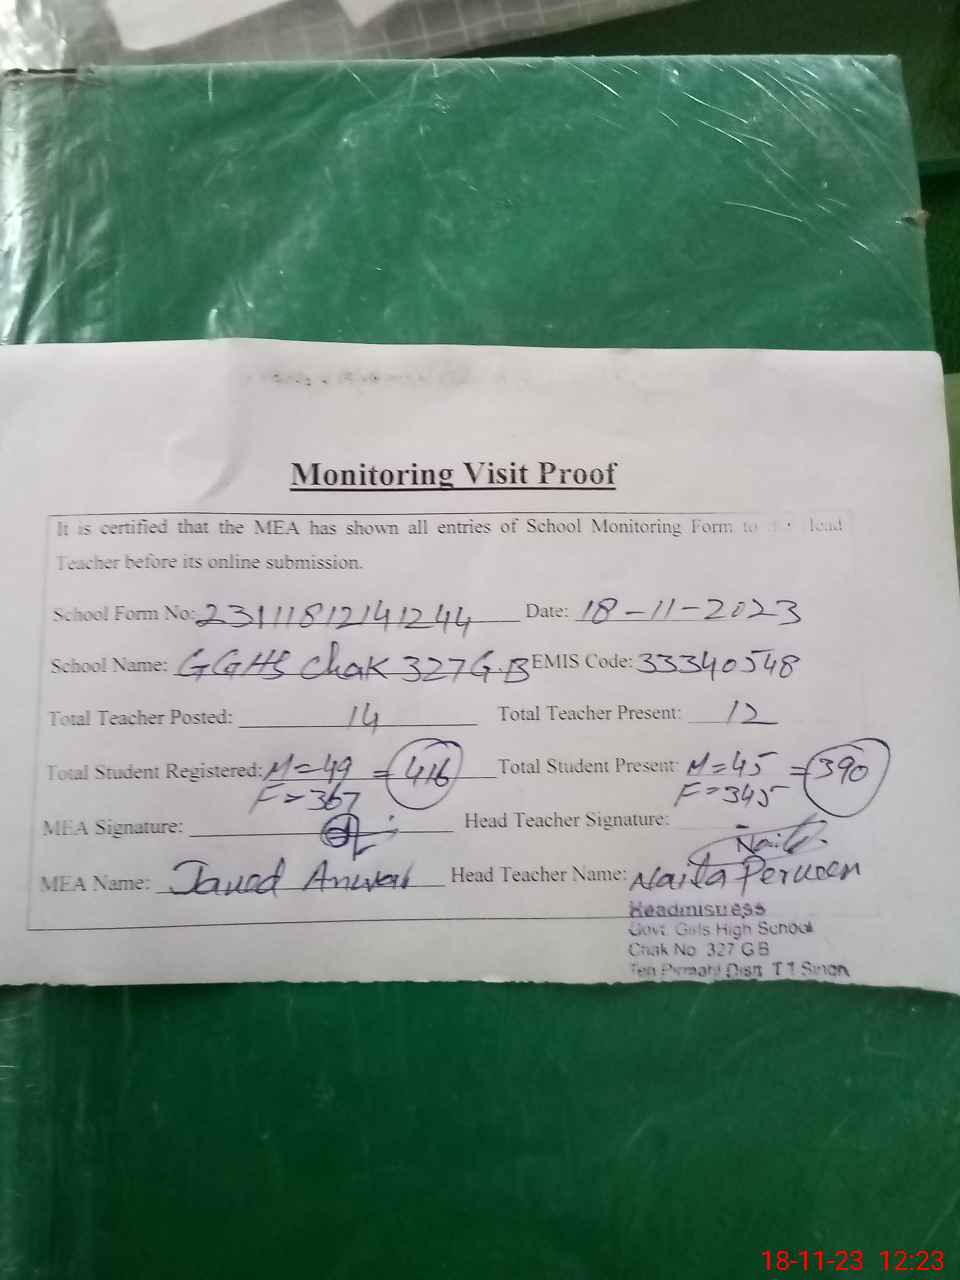 Monitoring Visit Proof
It is certified that the MEA has shown all entries of School Monitoring Form to Head
Teacher before its online submission.
School Form No: 23111812141244 Date: 18-11-2023
School Name: GGHS Chak 327 G.B EMIS Code: 33340548
Total Teacher Posted: 14 Total Teacher Present: 12
Total Student Registered: M=49 =416 Total Student Present: M=45 =390
F=367 F=345
MEA Signature: Head Teacher Signature: Naila
MEA Name: Javed Anwar Head Teacher Name: Naila Perveen
Headmistress
Govt. Girls High School
Chak No. 327 GB
Distt. T.T Singh
18-11-23 12:23